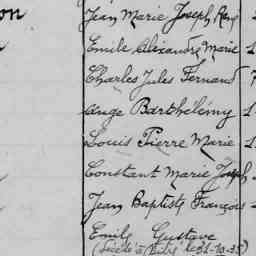 on Jean Marie Joseph René
Emile Alexandre Marie
Charles Jules Fernand
Ange Barthélémy
Louis Pierre Marie
Constant Marie Joseph
Jean Baptiste François
Emile Gustave
(décédé à